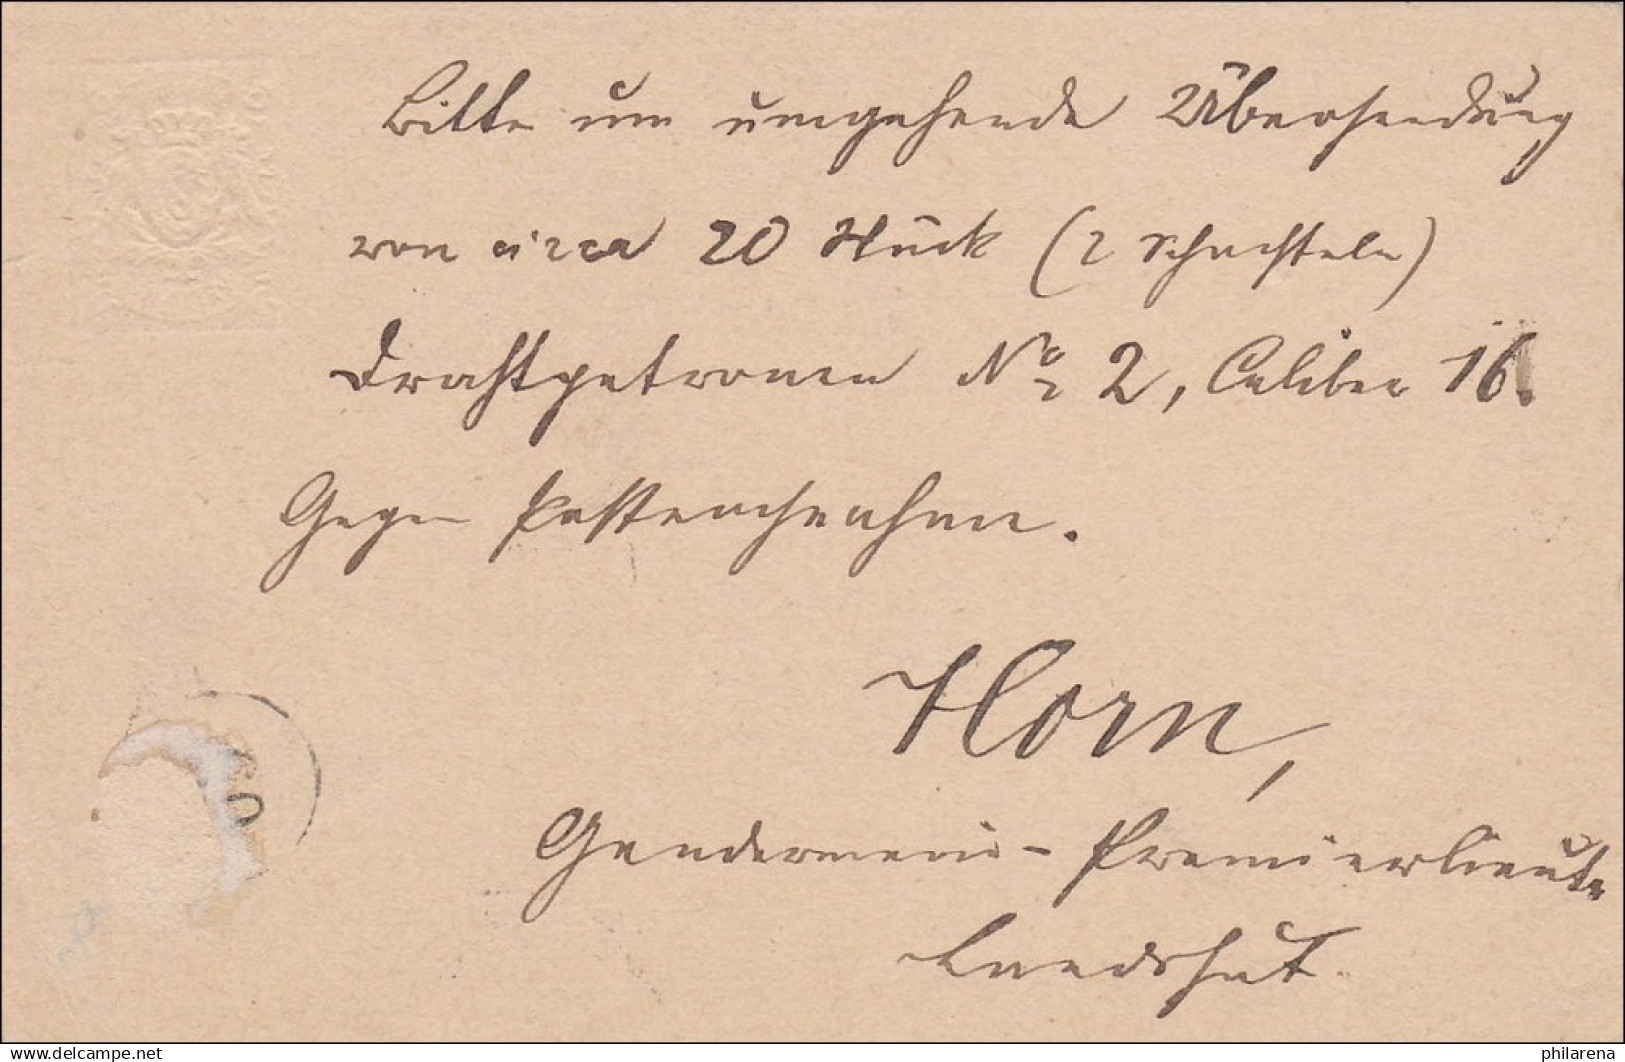 Bitte um umgehende Übersendung
von circa 20 Stück (2 Schachteln)
Drahtpatronen No 2, Caliber 16.
Gegen Postnachnahme.
Horn,
Gendarmerie-Premierlieut.
Landshut.
www.delcampe.net
philarena